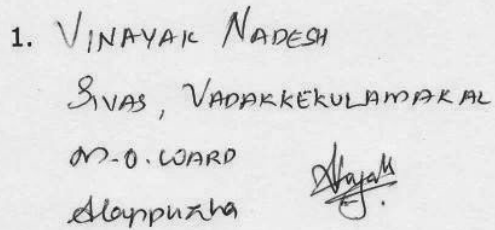 1. VINAYAK NADESH
SIVAS, VADAKKEKULAMAKAL
M.O. WARD
Alappuzha